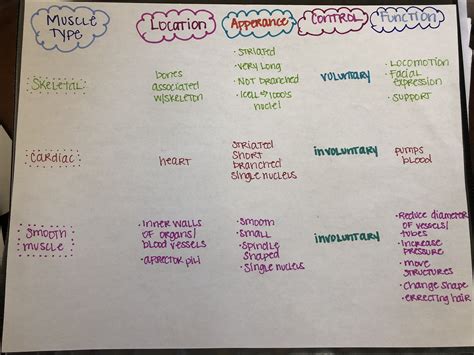 Muscle Type
Location
Apperance
Control
Function
Skeletal
bones
associated
w/skeleton
• Striated
• Very Long
• Not branched
• 1cell → 1000's
nuclei
voluntary
• Locomotion
• Facial
expression
• Support
Cardiac
heart
Striated
Short
branched
Single nucleus
involuntary
pumps
blood
Smooth
muscle
• Inner walls
of organs/
blood vessels
• arrector pili
• Smooth
• Small
• Spindle
shaped
• Single nucleus
involuntary
• Reduce diameter
of vessels/
tubes
• Increase
pressure
• move
structures
• Change Shape
• errecting hair